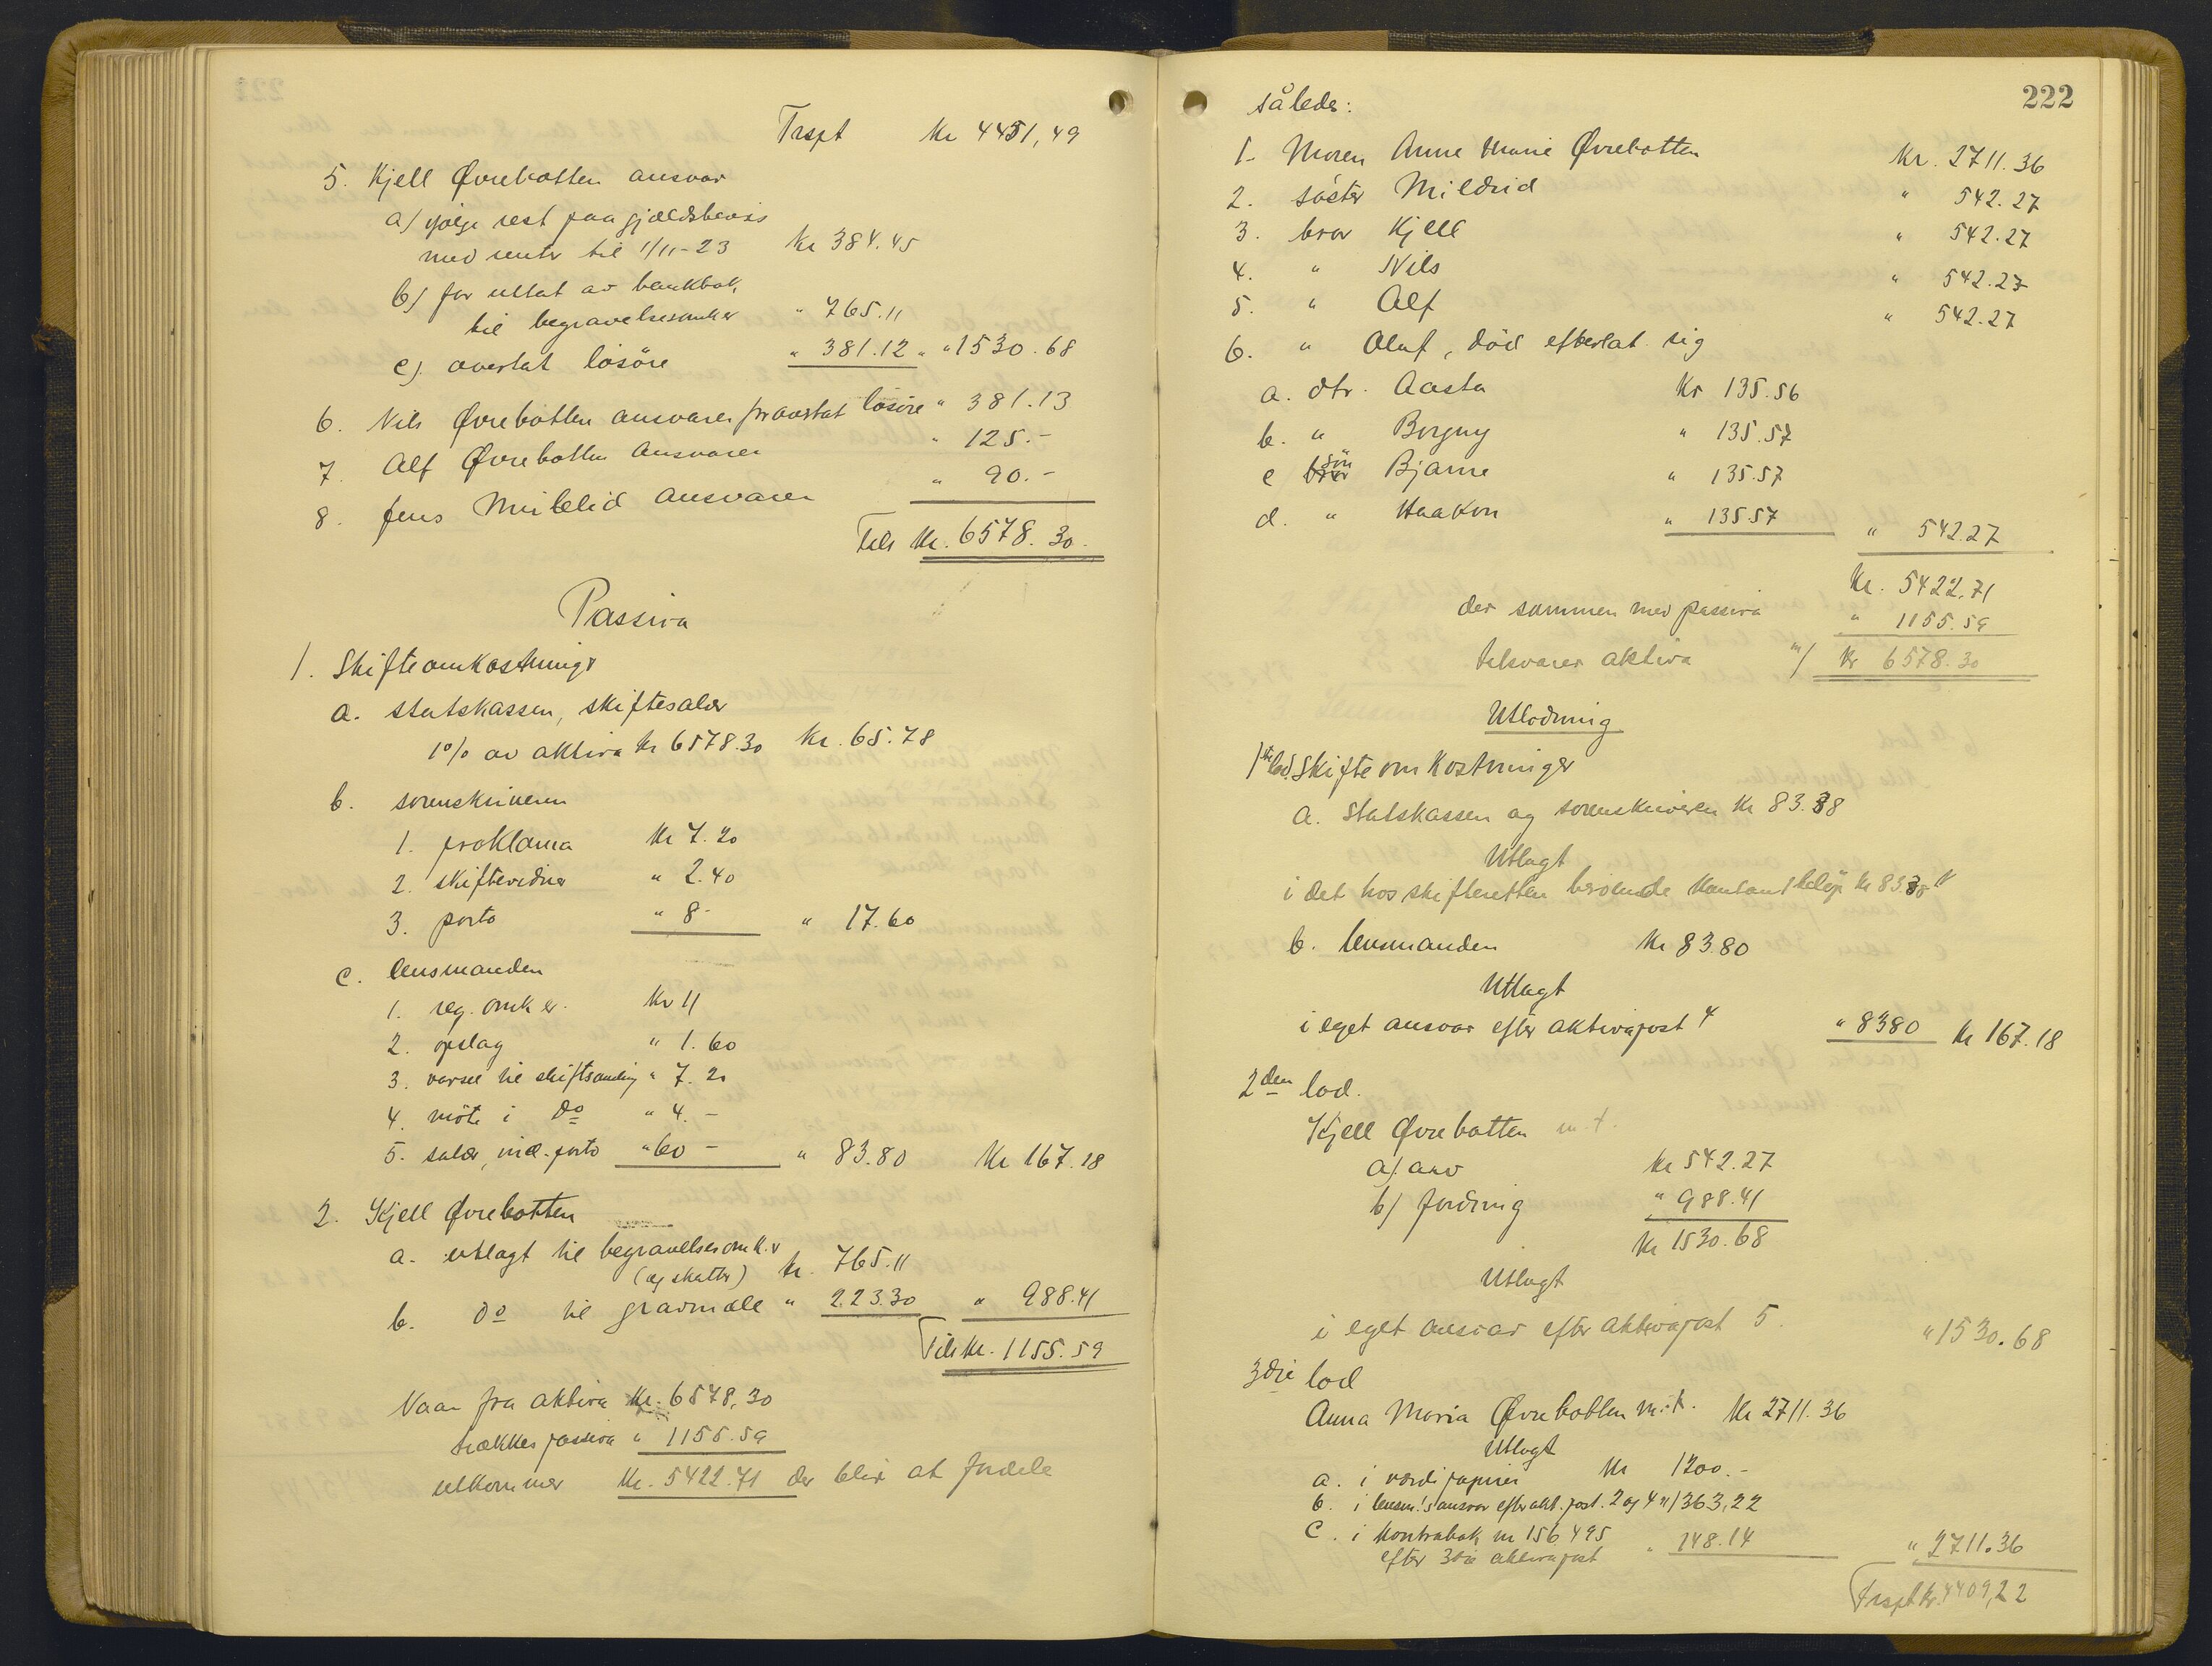 Trspt Kr 4451,49
5. Kjell Øvrebotten ansvar
a) ifølge rest paa gjældsbevis
med renter til 1/11-23 Kr 384.45
b) for uttat av bankbok
til begravelsesomk.er " 765.11
c). overtat løsøre " 381.12 " " 1530.68
6. Nils Øvrebotten ansvarer for overtat løsøre " 381.13
7. Alf Øvrebotten ansvarer " 125.-
8. Jens Myklelid ansvarer " 90.-
Tils Kr. 6578.30.
Passiva
1. Skifteomkostninger
a. statskassen, skiftesalær
1% av aktiva Kr 6578.30 Kr. 65.78
b. sorenskriveren
1. proklama Kr 7.20
2. skiftevidner " 2.40
3. porto " 8- " 17.60
c. lensmanden
1. reg. omk.er. Kr 11
2. opslag " 1.60
3. varsel til skiftsamling " 7.20
4. møte i do " 4.-
5. salær, incl. porto " 60- " 83.80 Kr 167.18
2. Kjell Øvrebotten
a. utlagt til begravelsesomk.r
(og skatter) Kr. 765.11
b. do til gravmæle " 223.30 " 988.41
Tils Kr. 1155.59
Naar fra aktiva Kr. 6578,30
trækkes passiva " 1155.59
utkommer Kr. 5422.71 der blir at fordele
222
således:
1. Moren Anne Marie Øvrebotten Kr. 2711.36
2. søster Mildrid " 542.27
3. bror Kjell " 542.27
4. " Nils " 542.27
5. " Alf " 542.27
6. " Oluf, død efterlat sig
a. dtr. Aasta Kr 135.56
b. " Borgny " 135.57
c bror søn Bjarne " 135.57
d. " Haakon " 135.57 " 542.27
Kr. 5422.71
der sammen med passiva " 1155.59
tilsvarer aktiva m/ Kr 6578.30
Utlodning
1ste lod. Skifteomkostninger
a. Statskassen og sorenskriveren Kr 83.38
Utlagt
i det hos skifteretten beroende kontantbeløp Kr 83.38 "
b. lensmanden Kr 83.80
Utlagt
i eget ansvar efter aktivapost 4 " 83.80 Kr 167.18
2den lod.
Kjell Øvrebotten m.t.
a). arv Kr 542.27
b) fordring " 988.41
Kr 1530.68
Utlagt
i eget ansvar efter aktivapost 5. " 1530.68
3die lod
Anna Maria Øvrebotten m.t. Kr 2711.36
Utlagt
a. i værdipapirer Kr 1200.-
b. i lensm.'s ansvar efter akt. post. 2 og 4 " 1363,22
c. i kontrabok nr 156.495
efter 3die aktivapost " 148.14 " 2711.36
Trspt Kr. 4409,22